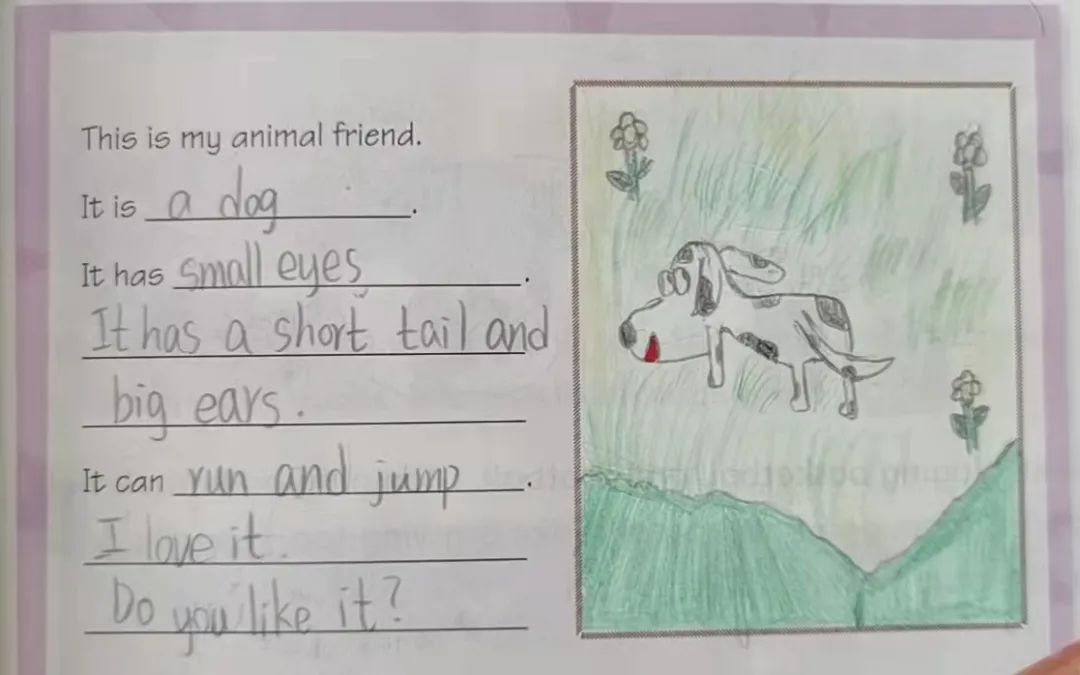 This is my animal friend.
It is a dog.
It has small eyes.
It has a short tail and
big ears.
It can run and jump.
I love it.
Do you like it?